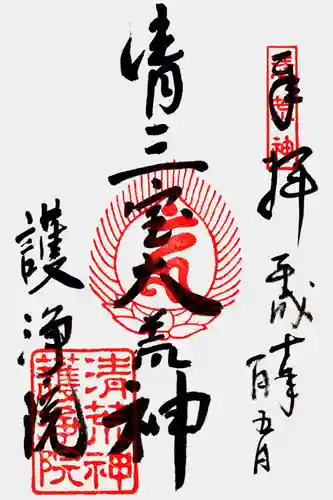 奉拝
平成
五日
清荒神
清三宝大荒神
護浄院
清荒神
護浄院